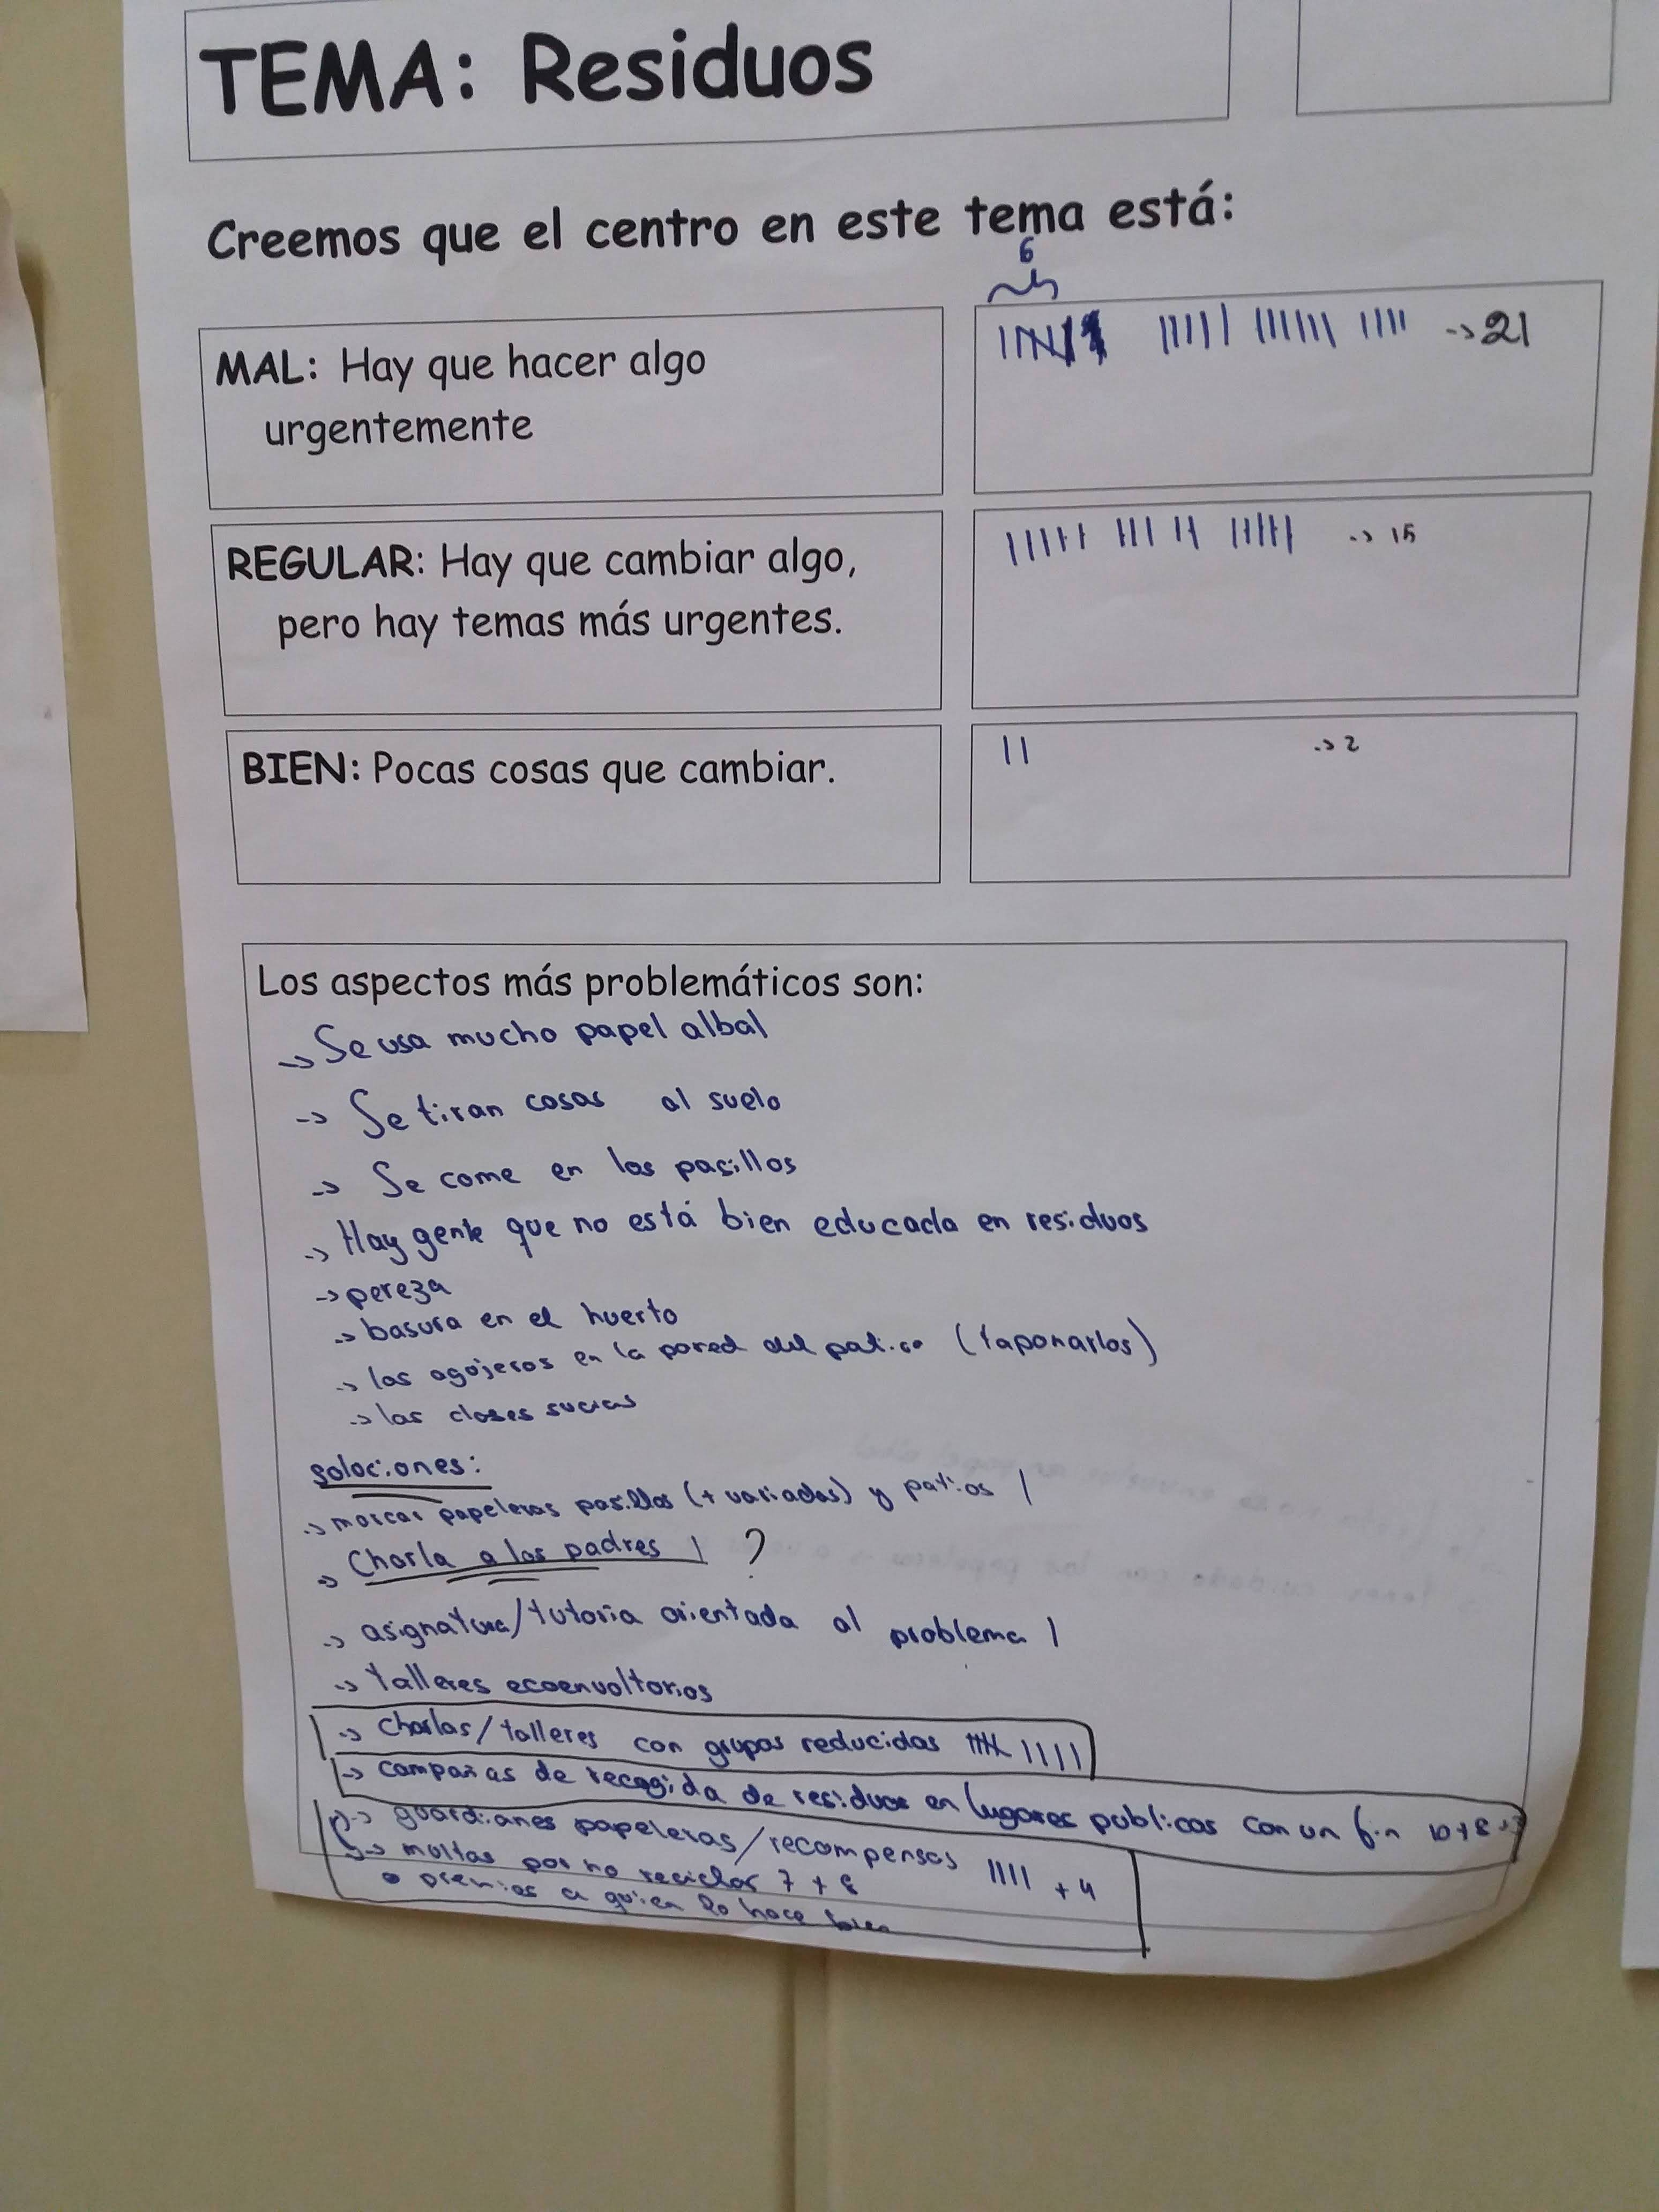 TEMA: Residuos
Creemos que el centro en este tema está:
6
MAL: Hay que hacer algo
urgentemente
-> 21
REGULAR: Hay que cambiar algo,
pero hay temas más urgentes.
-> 15
BIEN: Pocas cosas que cambiar.
|| -> 2
Los aspectos más problemáticos son:
-> Se usa mucho papel albal
-> Se tiran cosas al suelo
-> Se come en los pasillos
-> Hay gente que no está bien educada en residuos
-> pereza
-> basura en el huerto
-> los agojeros en la pared del patio (taponarlos)
-> las clases sucias
soluciones:
-> marcar papeleras pasillos (+ variadas) y patios |
-> Charla a los padres | ?
-> asignatura/tutoria orientada al problema |
-> talleres ecoenvoltorios
-> charlas/talleres con grupos reducidos |||| ||||
-> campañas de recogida de residuos en lugares publicos con un fin 10+8
-> guardianes papeleras/recompensas |||| + 4
-> multas por no reciclar 7 + 8
o premios a quien lo hace bien